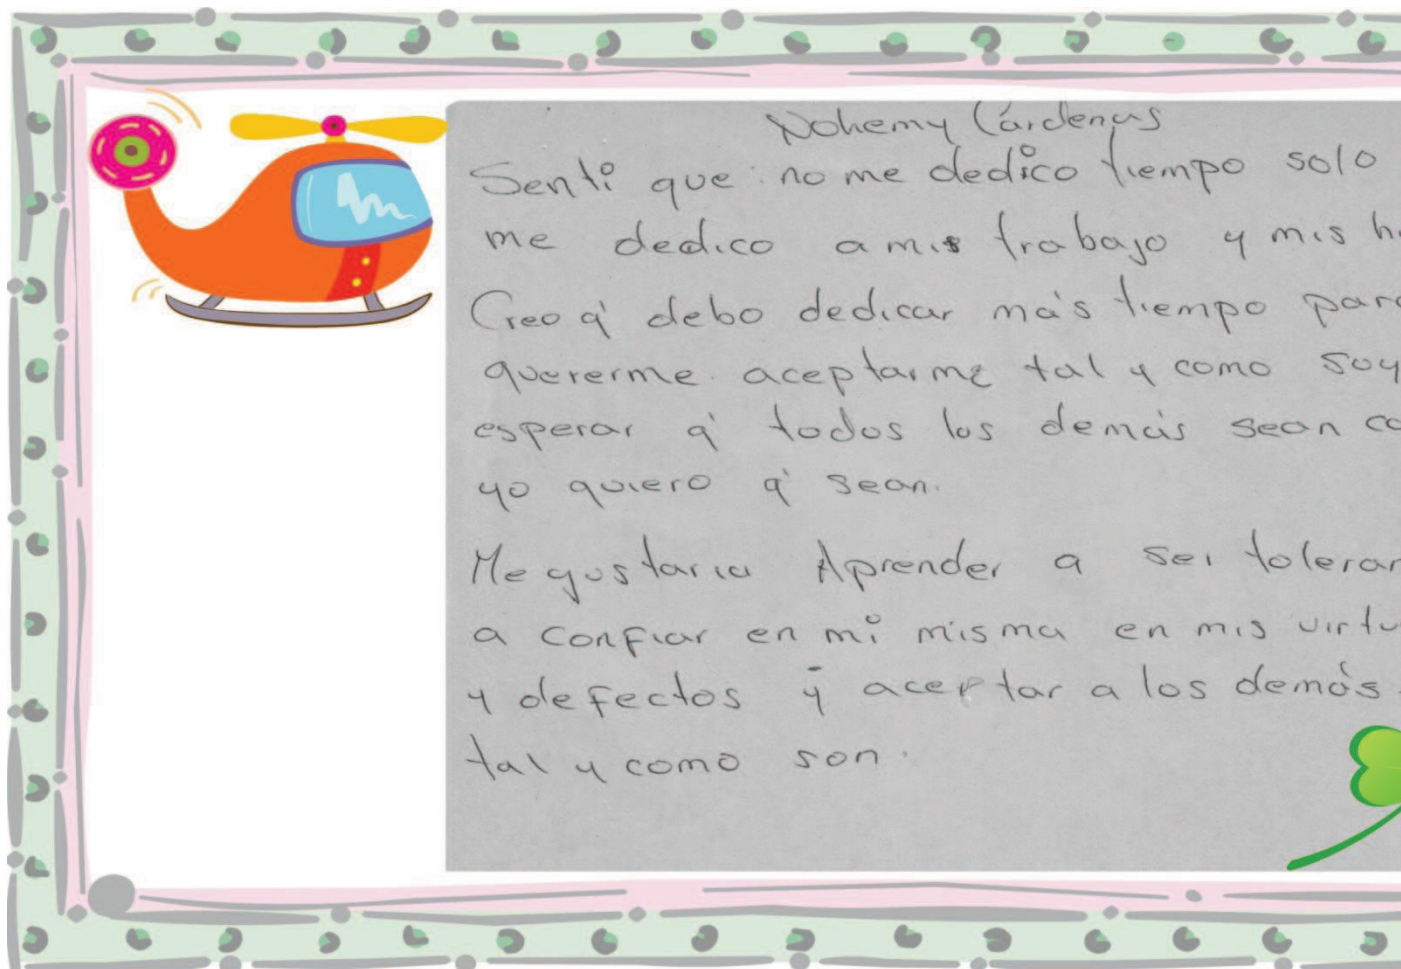 Nohemy Cárdenas
Sentí que no me dedico tiempo solo
me dedico a mis trabajo y mis
Creo q' debo dedicar más tiempo
quererme aceptarme tal y como soy
esperar q' todos los demás sean
yo quiero q' sean.
Me gustaria Aprender a ser
a confiar en mí misma en mis
y defectos y aceptar a los demás
tal y como son.